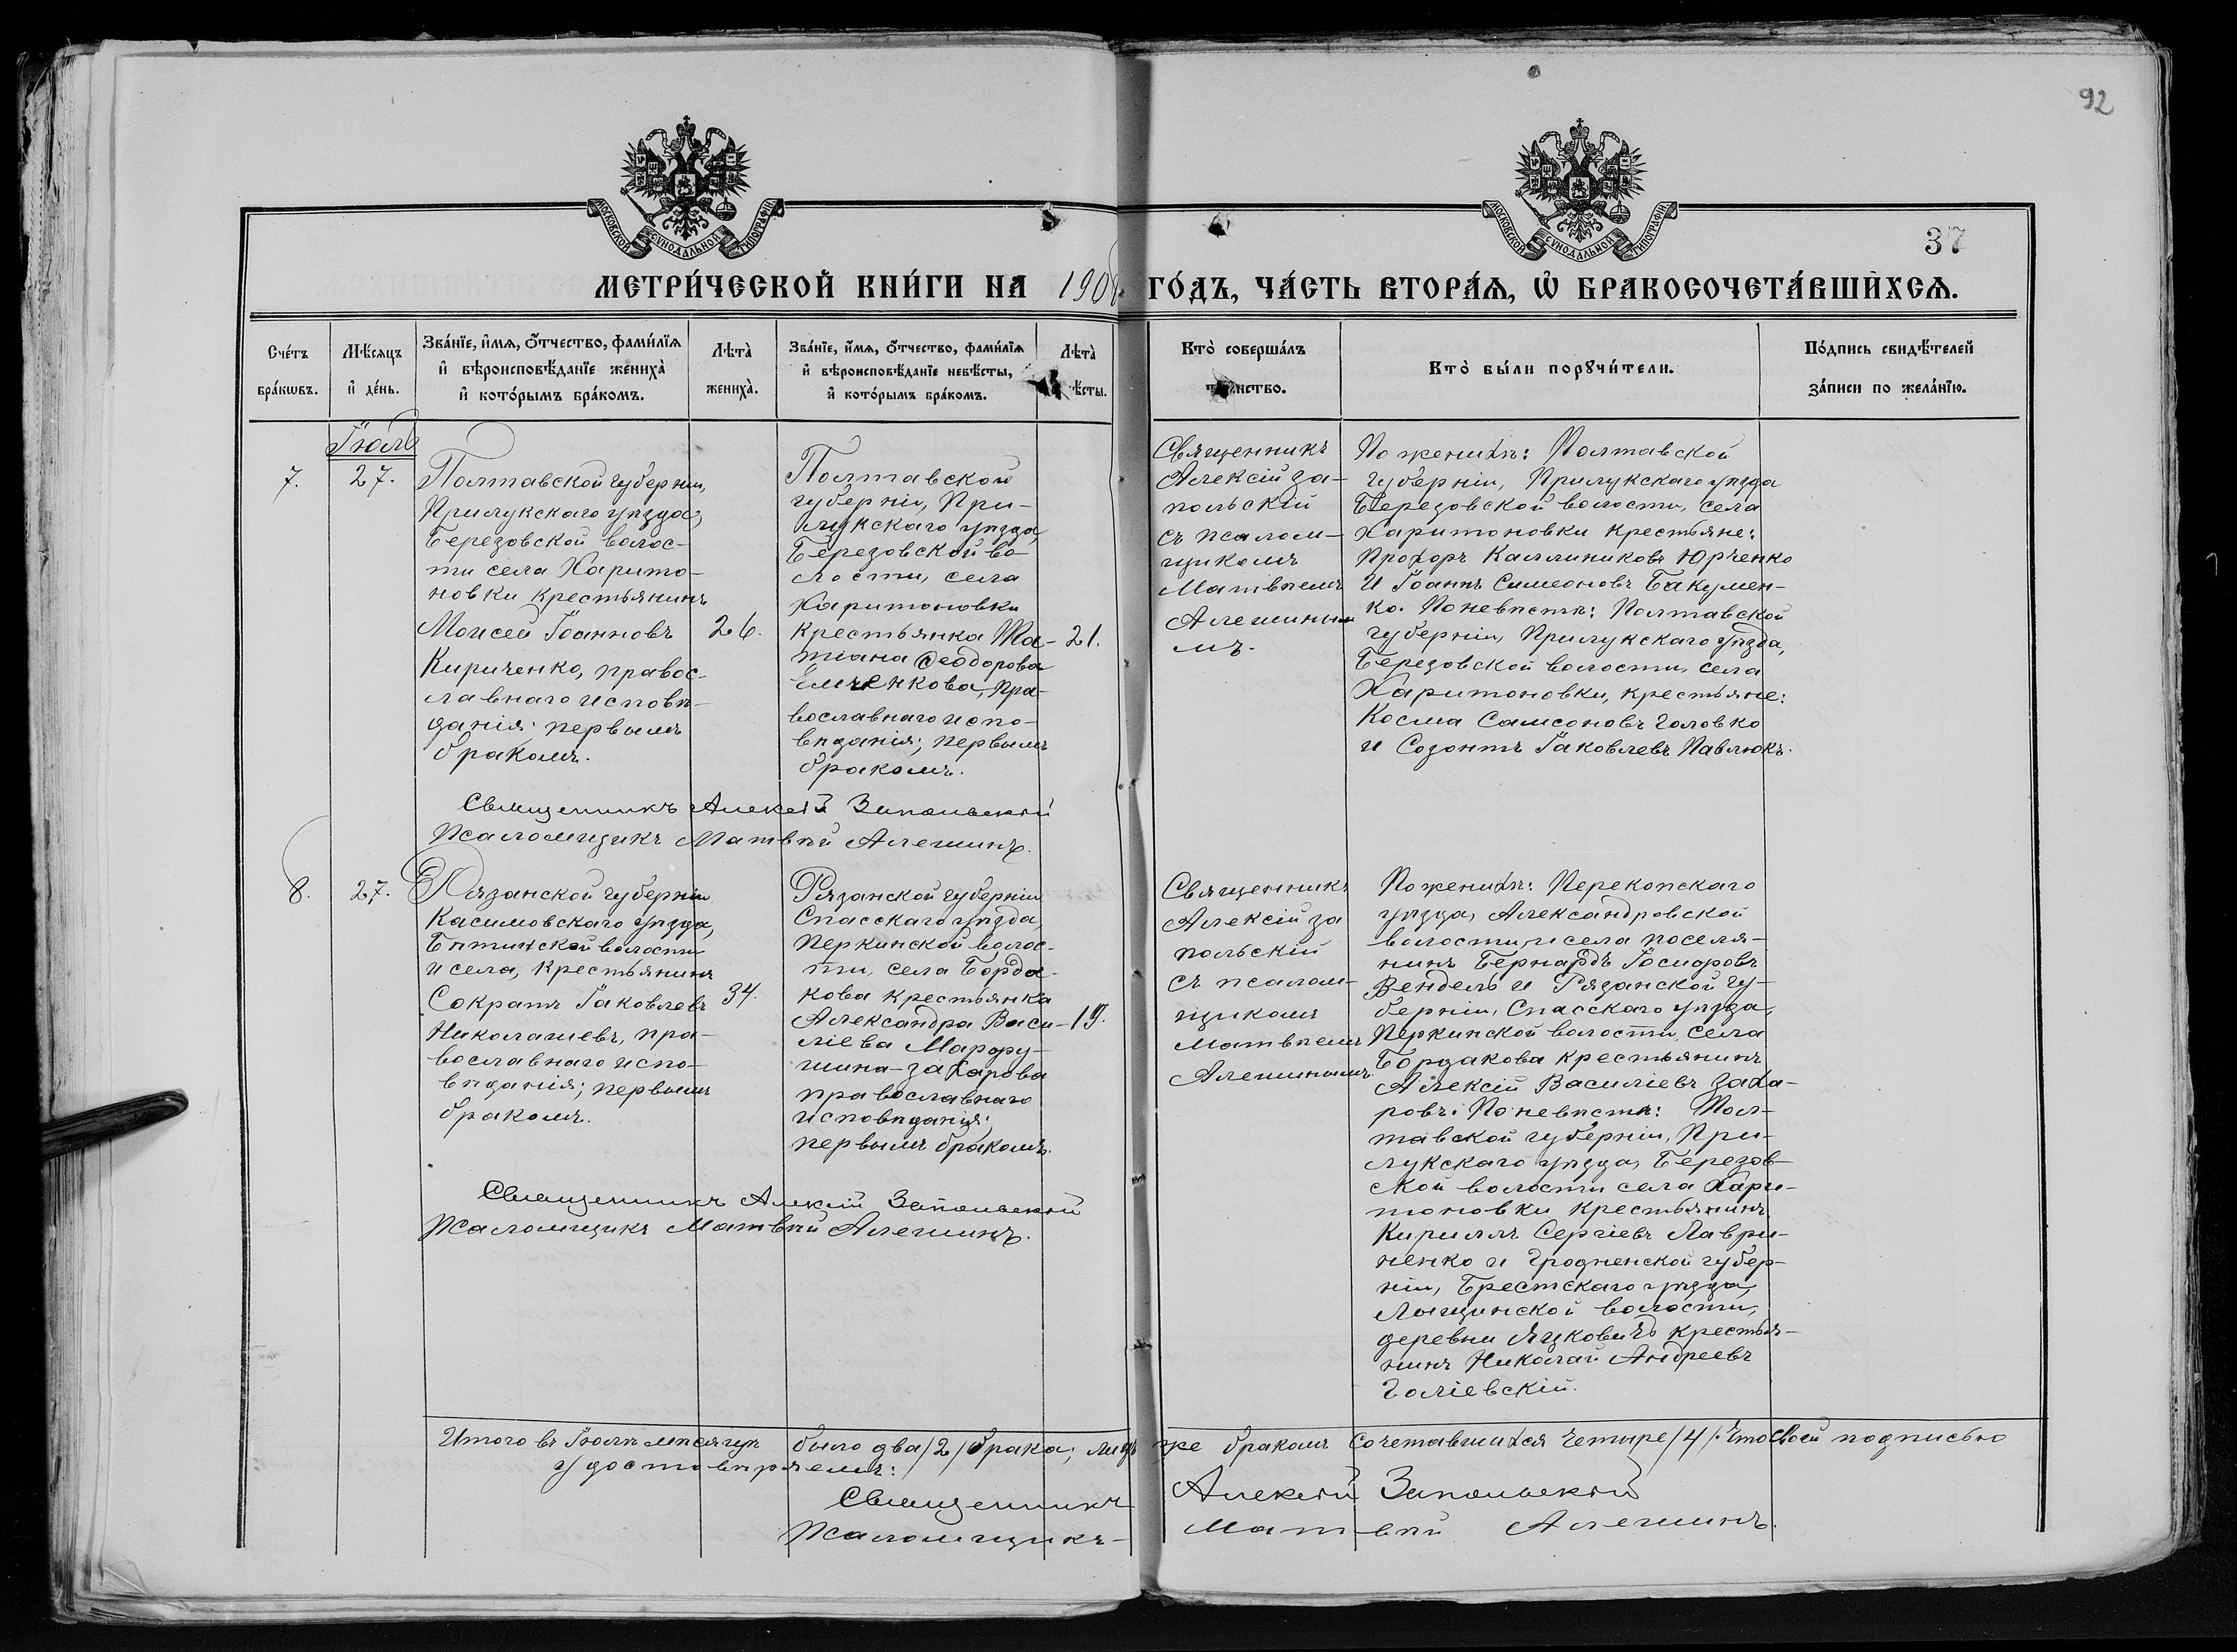 92
МОСКОВСКОЙ СѴНОДАЛЬНОЙ ТИПОГРАФІИ
МОСКОВСКОЙ СѴНОДАЛЬНОЙ ТИПОГРАФІИ
37
МЕТРИ́ЧЕСКОЙ КНИ́ГИ НА 1908 ГО́ДЪ, ЧА́СТЬ ВТОРА́Ѧ, Ѡ҆ БРАКОСОЧЕТА́ВШИХСѦ.
Сче́тъ
бра́кѡвъ.
Мѣ́сѧцъ
и҆ де́нь.
Зва́нїе, и҆́мѧ, ѻ҆́тчество, фами́лїѧ
и҆ вѣроисповѣ́данїе жениха̀
и҆ кото́рымъ бра́комъ.
Лѣта̀
жениха̀.
Зва́нїе, и҆́мѧ, ѻ҆́тчество, фами́лїѧ
и҆ вѣроисповѣ́данїе невѣ́сты,
и҆ кото́рымъ бра́комъ.
Лѣта̀
ѣ́сты.
Кто̀ соверша́лъ
таинство.
Кто̀ бы́ли порꙋчи́тели.
По́дпись свидѣ́телей
за́писи по жела́нїю.
Іюль
7.
27.
Полтавской губерніи,
Прилукскаго уѣзда,
Березовской волос-
ти села Харито-
новки крестьянинъ
Моисей Іоанновъ
Кириченко, правос-
лавнаго исповѣ-
данія; первымъ
бракомъ.
26.
Полтавской
губерніи, При-
лукскаго уѣзда,
Березовской во-
лости, села
Харитоновки
крестьянка Та-
тіана Ѳеодорова
Емченкова, пра-
вославнаго испо-
вѣданія; первымъ
бракомъ.
21.
Священникъ
Алексій За-
польскій
съ псалом-
щикомъ
Матвѣемъ
Алешины
мъ.
По женихѣ: Полтавской
губерніи, Прилукскаго уѣзда
Березовской волости, села
Харитоновки крестьяне:
Прохоръ Каллиниковъ Юрченко
и Іоаннъ Симеоновъ Бакумен-
ко. По невѣстѣ: Полтавской
губерніи, Прилукскаго уѣзда,
Березовской волости, села
Харитоновки, крестьяне:
Косма Самсоновъ Головко
и Созонтъ Іаковлевъ Павлюкъ.
Священникъ Алексій Запольскій
Псаломщикъ Матвѣй Алешинъ.
8.
27.
Рязанской губерніи
Касимовскаго уѣзда,
Бѣтинской волости
и села, крестьянинъ
Сократъ Іаковлевъ
Николашевъ, пра-
вославнаго испо-
вѣданія; первымъ
бракомъ.
34.
Рязанской губерніи
Спасскаго уѣзда,
Перкинской волос-
ти, села Борда-
кова крестьянка
Александра Васи-
ліева
шина-Захарова
православнаго
исповѣданія;
первымъ бракомъ.
19.
Священникъ
Алексій За
польскій
съ псалом-
щикомъ
Матвѣемъ
Алешинымъ
По женихѣ: Перекопскаго
уѣзда, Александровской
волости, и села поселя-
нинъ Бернардъ Іосифовъ
Вендель и Рязанской гу-
берніи, Спасскаго уѣзда,
Перкинской волости, села
Бордакова крестьянинъ
Алексій Василіевъ Заха-
ровъ: По невѣстѣ: Пол-
тавской губерніи, При-
лукскаго уѣзда, Березов-
ской волости села Хари-
тоновки крестьянинъ
Кириллъ Сергіевъ Лаври-
ненко и Гродненской губер-
ніи, Брестскаго уѣзда,
Лыщинской волости,
деревни Яцковичъ крестья-
нинъ Николай Андреевъ
Галіевскій.
Священникъ Алексій Запольскій
Псаломщикъ Матвѣй Алешинъ.
Итого въ Іюлѣ мѣсяцѣ было два /2/ брака; лицъ же бракомъ сочетавшихся четыре /4/. Что своей подписью
удостовѣряемъ:
Священникъ Алексій Запольскій
Псаломщикъ- Матвѣй Алешинъ.